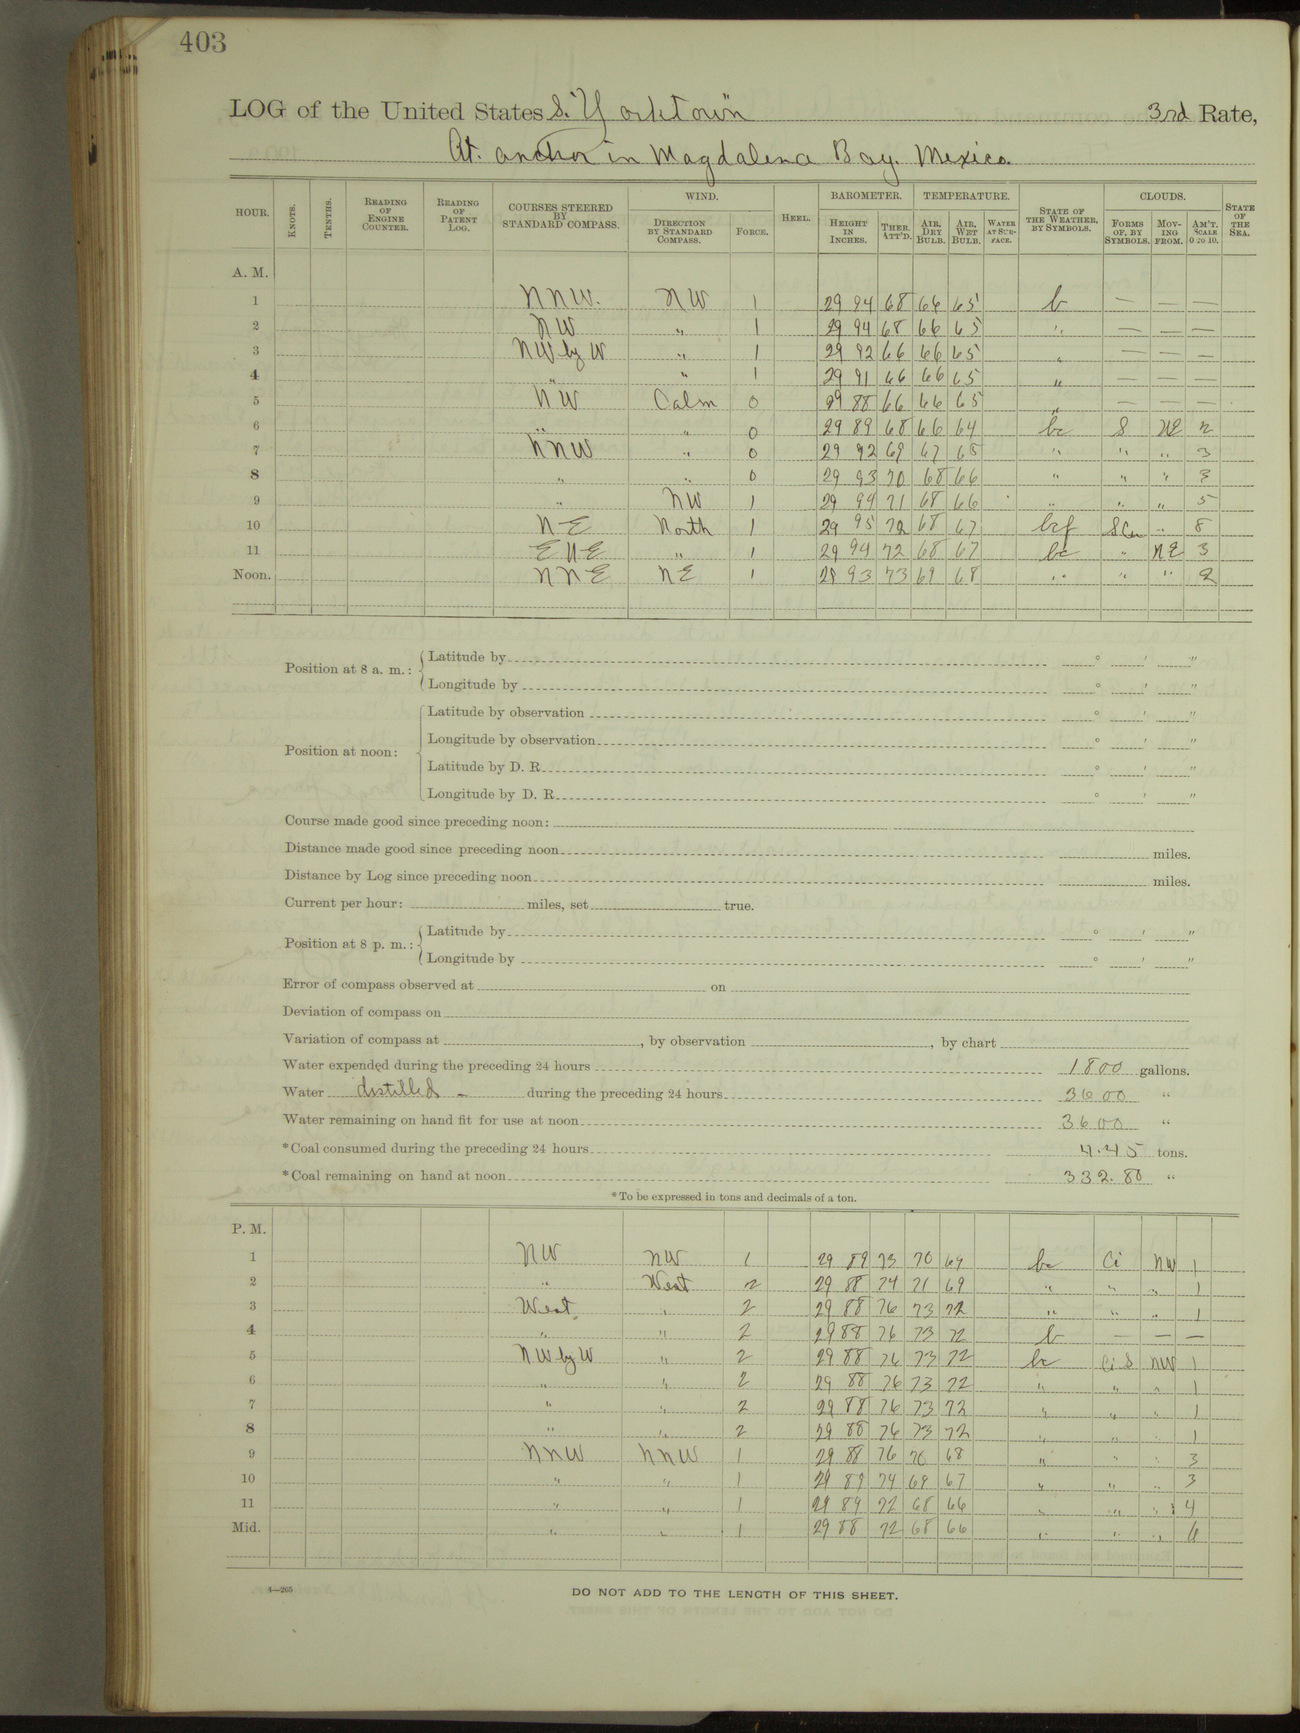 403
LOG of the United States S. "Yorktown" 3rd Rate,
At anchor in Magdalena Bay. Mexico.
HOUR. KNOTS. TENTHS. READING OF ENGINE COUNTER. READING OF PATENT LOG. COURSES STEERED BY STANDARD COMPASS. WIND. DIRECTION BY STANDARD COMPASS. FORCE. HEEL. BAROMETER. HEIGHT IN INCHES. THER. ATT'D. TEMPERATURE. AIR, DRY BULB. AIR, WET BULB. WATER AT SURFACE. STATE OF THE WEATHER, BY SYMBOLS. CLOUDS. FORMS OF, BY SYMBOLS. MOVING FROM. AM'T. SCALE 0 TO 10. STATE OF THE SEA.
A. M.
1 NNW. NW 1 29 94 68 66 65 b — — —
2 NW " 1 29 94 68 66 65 " — — —
3 NW by W " 1 29 92 66 66 65 " — — —
4 " " 1 29 91 66 66 65 " — — —
5 NW Calm 0 29 88 66 66 65 " — — —
6 " " 0 29 89 68 66 64 bc S NE 2
7 NNW " 0 29 92 69 67 65 " " " 3
8 " " 0 29 93 70 68 66 " " " 3
9 " NW 1 29 94 71 68 66 " " " 5
10 N-E North 1 29 95 72 68 67 bcf SCu " 8
11 ENE " 1 29 94 72 68 67 bc " NE 3
Noon. NNE NE 1 29 93 73 69 68 " " " 2
Position at 8 a. m.: Latitude by ° ′ ″
Longitude by ° ′ ″
Position at noon: Latitude by observation ° ′ ″
Longitude by observation ° ′ ″
Latitude by D. R. ° ′ ″
Longitude by D. R. ° ′ ″
Course made good since preceding noon:
Distance made good since preceding noon miles.
Distance by Log since preceding noon miles.
Current per hour: miles, set true.
Position at 8 p. m.: Latitude by ° ′ ″
Longitude by ° ′ ″
Error of compass observed at on
Deviation of compass on
Variation of compass at , by observation , by chart
Water expended during the preceding 24 hours 1800 gallons.
Water distilled - during the preceding 24 hours 3600 "
Water remaining on hand fit for use at noon 3600 "
*Coal consumed during the preceding 24 hours 4.45 tons.
*Coal remaining on hand at noon 332.80 "
*To be expressed in tons and decimals of a ton.
P. M.
1 NW NW 1 29 89 73 70 69 bc Ci NW 1
2 " West 2 29 88 74 71 69 " " " 1
3 West " 2 29 88 76 73 72 " " " 1
4 " " 2 29 88 76 73 72 b — — —
5 NW by W " 2 29 88 76 73 72 bc Ci S NW 1
6 " " 2 29 88 76 73 72 " " " 1
7 " " 2 29 88 76 73 72 " " " 1
8 " " 2 29 88 76 73 72 " " " 1
9 NNW NNW 1 29 88 76 70 68 " " " 3
10 " " 1 29 89 74 69 67 " " " 3
11 " " 1 29 89 72 68 66 " " " 4
Mid. " " 1 29 88 72 68 66 " " " 6
4—265
DO NOT ADD TO THE LENGTH OF THIS SHEET.